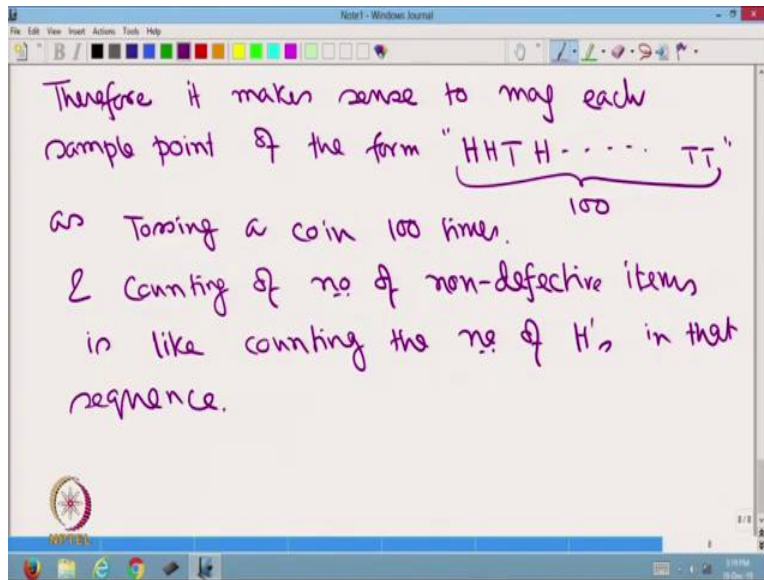 Note1 - Windows Journal
File Edit View Insert Actions Tools Help
B I
Therefore it makes sense to map each
sample point of the form "HHTH-----TT"
100
as Tossing a coin 100 times.
& Counting of no of non-defective items
is like counting the no of H's in that
sequence.
NPTEL
8/8